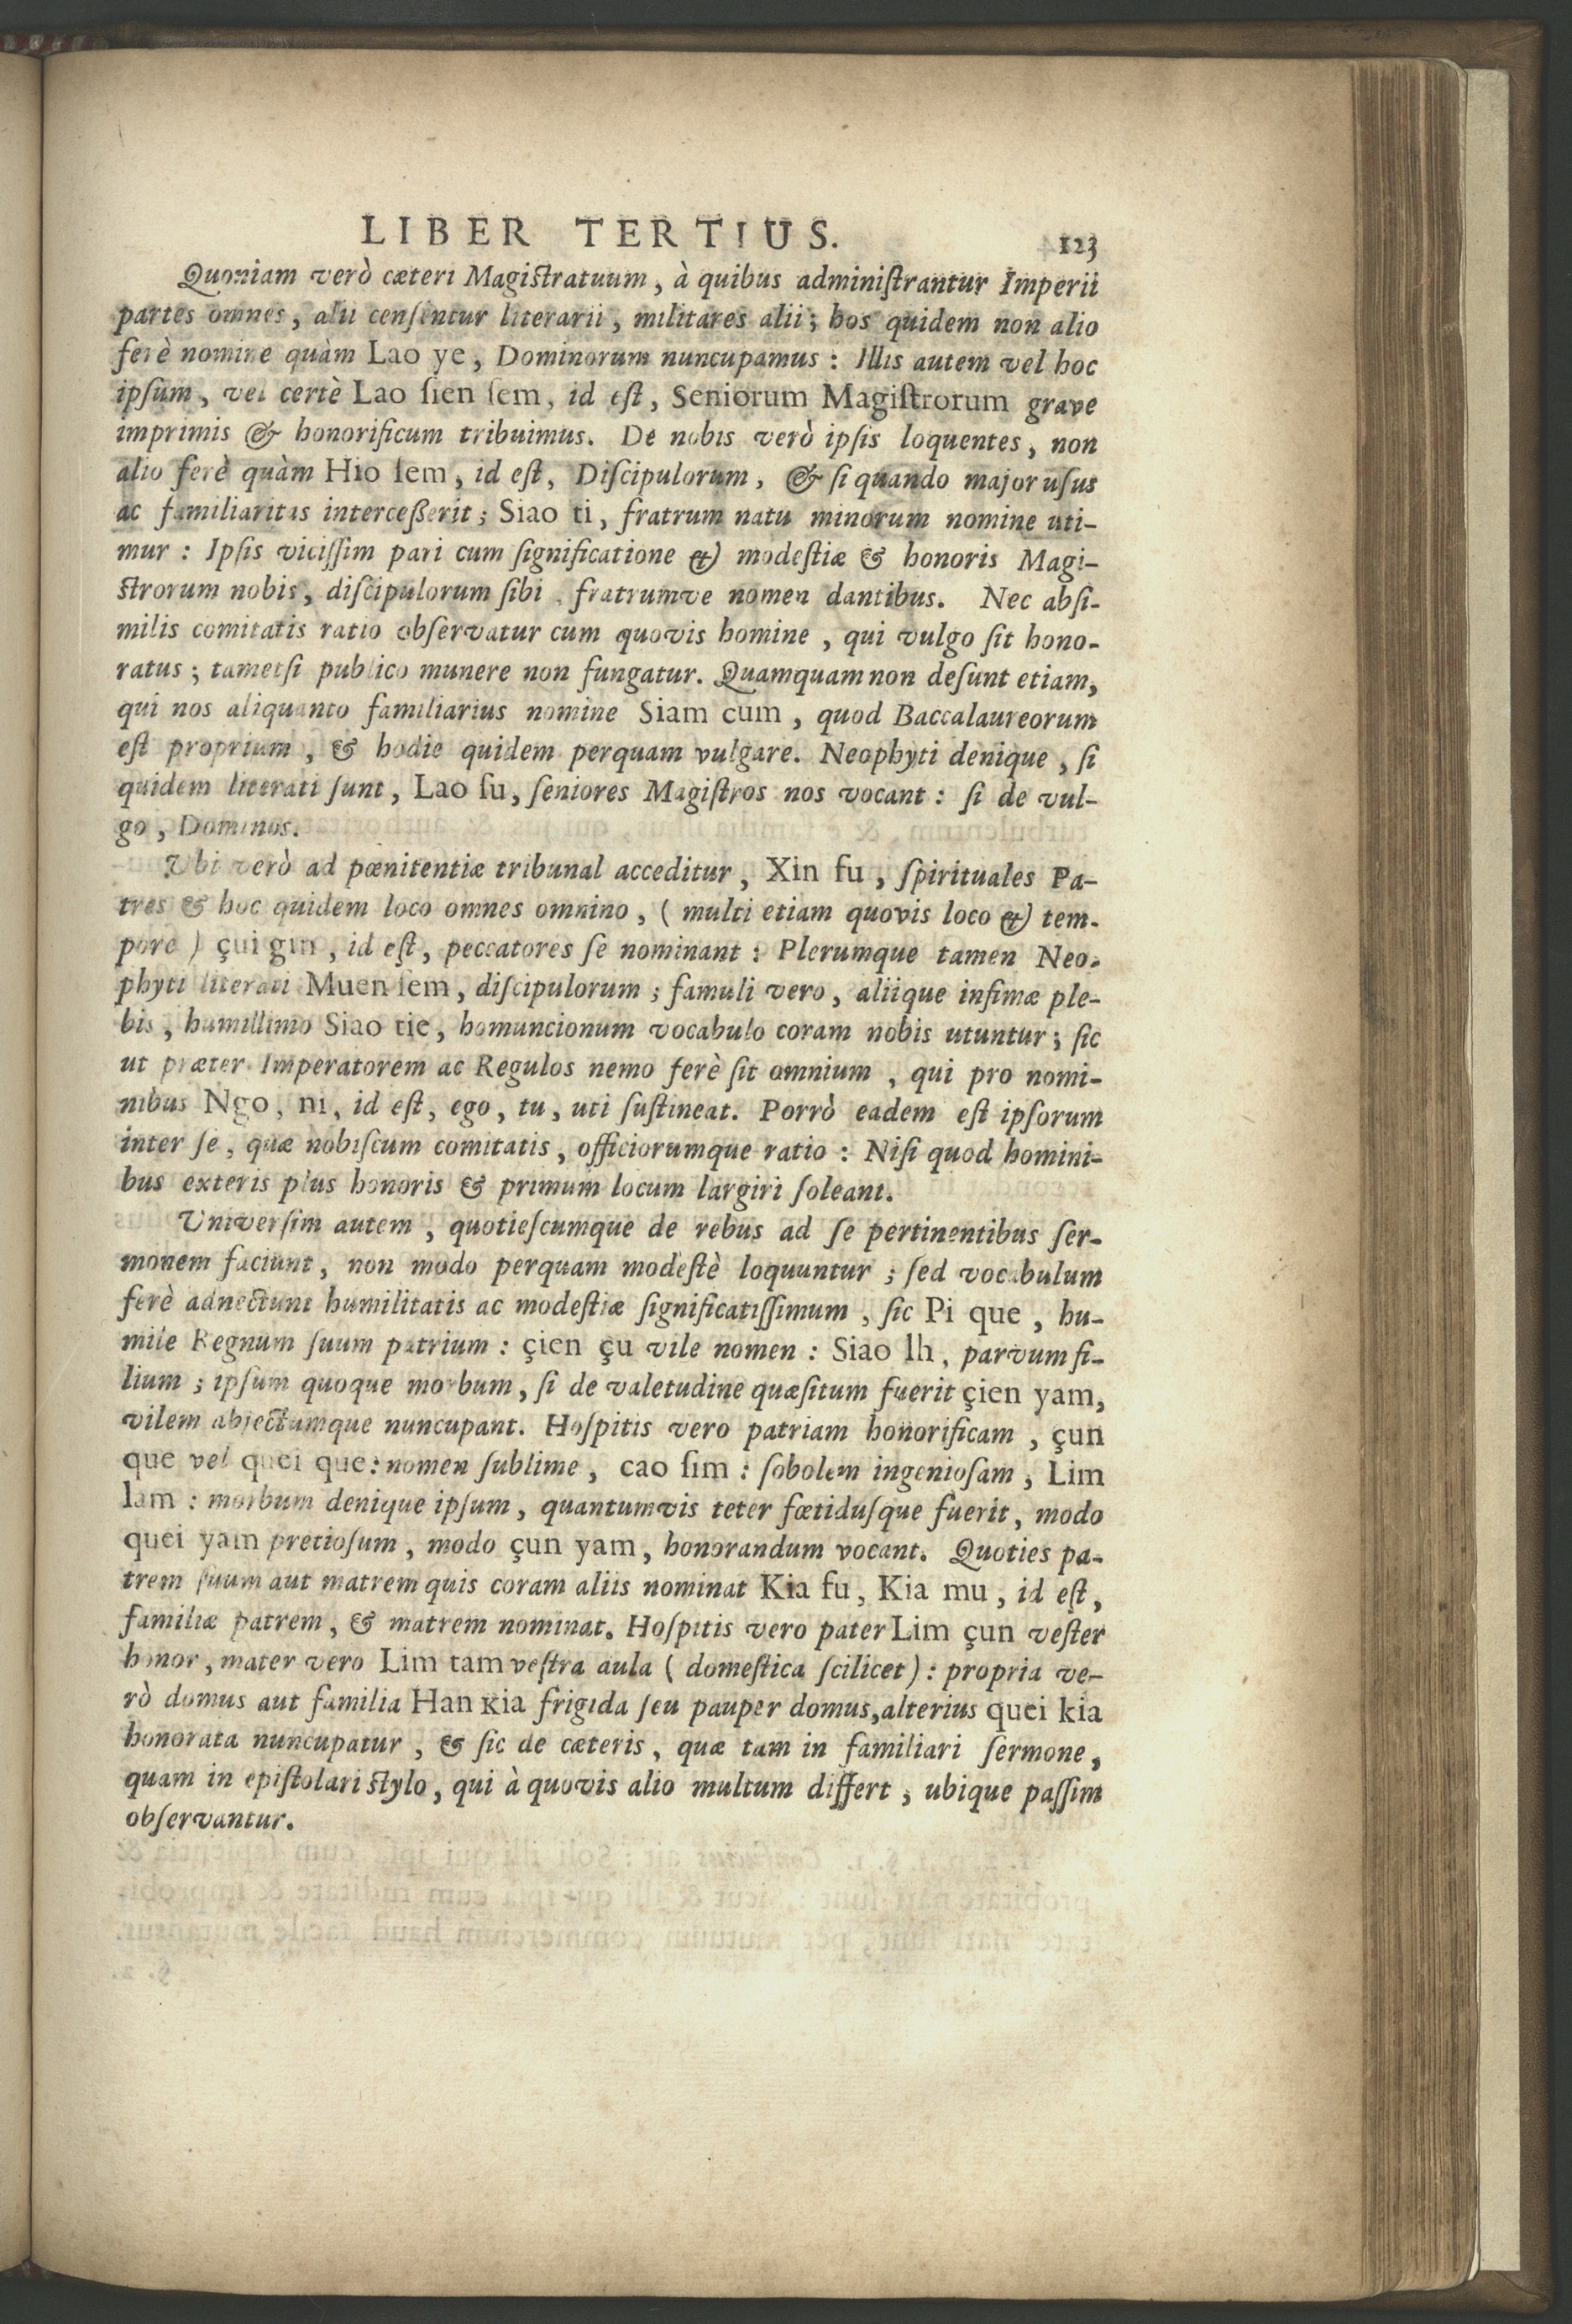 LIBER TERTIUS. 123
Quoniam verò cæteri Magiſtratuum, à quibus adminiſtrantur Imperii
partes omnes, alii cenſentur literarii, militares alii; hos quidem non alio
ferè nomine quàm Lao ye, Dominorum nuncupamus: Illis autem vel hoc
ipſum, vel certè Lao ſien ſem, id eſt, Seniorum Magiſtrorum grave
imprimis & honorificum tribuimus. De nobis verò ipſis loquentes, non
alio ferè quàm Hio ſem, id eſt, Diſcipulorum, & ſi quando major uſus
ac familiaritas interceßerit; Siao ti, fratrum natu minorum nomine uti-
mur: Ipſis viciſſim pari cum ſignificatione & modeſtiæ & honoris Magi-
ſtrorum nobis, diſcipulorum ſibi, fratrumve nomen dantibus. Nec abſi-
milis comitatis ratio obſervatur cum quovis homine, qui vulgo ſit hono-
ratus; tametſi publico munere non fungatur. Quamquam non deſunt etiam,
qui nos aliquanto familiarius nomine Siam cum, quod Baccalaureorum
eſt proprium, & hodie quidem perquam vulgare. Neophyti denique, ſi
quidem literati ſunt, Lao ſu, ſeniores Magiſtros nos vocant: ſi de vul-
go, Dominos.
Ubi verò ad pœnitentiæ tribunal acceditur, Xin fu, ſpirituales Pa-
tres & hoc quidem loco omnes omnino, (multi etiam quovis loco & tem-
pore) çui gin, id eſt, peccatores ſe nominant: Plerumque tamen Neo-
phyti literati Muen ſem, diſcipulorum; famuli vero, aliique infimæ ple-
bis, humillimo Siao tie, homuncionum vocabulo coram nobis utuntur; ſic
ut præter Imperatorem ac Regulos nemo ferè ſit omnium, qui pro nomi-
nibus Ngo, ni, id eſt, ego, tu, uti ſuſtineat. Porrò eadem eſt ipſorum
inter ſe, quæ nobiſcum comitatis, officiorumque ratio: Niſi quod homini-
bus exteris plus honoris & primum locum largiri ſoleant.
Univerſim autem, quotieſcumque de rebus ad ſe pertinentibus ſer-
monem faciunt, non modo perquam modeſtè loquuntur; ſed vocabulum
ferè adnectunt humilitatis ac modeſtiæ ſignificatiſſimum, ſic Pi que, hu-
mile Regnum ſuum patrium: çien çu vile nomen: Siao lh, parvum fi-
lium; ipſum quoque morbum, ſi de valetudine quæſitum fuerit çien yam,
vilem abjectumque nuncupant. Hoſpitis vero patriam honorificam, çun
que vel quei que: nomen ſublime, cao ſim: ſobolem ingenioſam, Lim
lam: morbum denique ipſum, quantumvis teter fœtiduſque fuerit, modo
quei yam pretioſum, modo çun yam, honorandum vocant. Quoties pa-
trem ſuum aut matrem quis coram aliis nominat Kia fu, Kia mu, id eſt,
familiæ patrem, & matrem nominat. Hoſpitis vero pater Lim çun veſter
honor, mater vero Lim tam veſtra aula (domeſtica ſcilicet): propria ve-
rò domus aut familia Han Kia frigida ſeu pauper domus, alterius quei kia
honorata nuncupatur, & ſic de cæteris, quæ tam in familiari ſermone,
quam in epiſtolari ſtylo, qui à quovis alio multum differt, ubique paſſim
obſervantur.